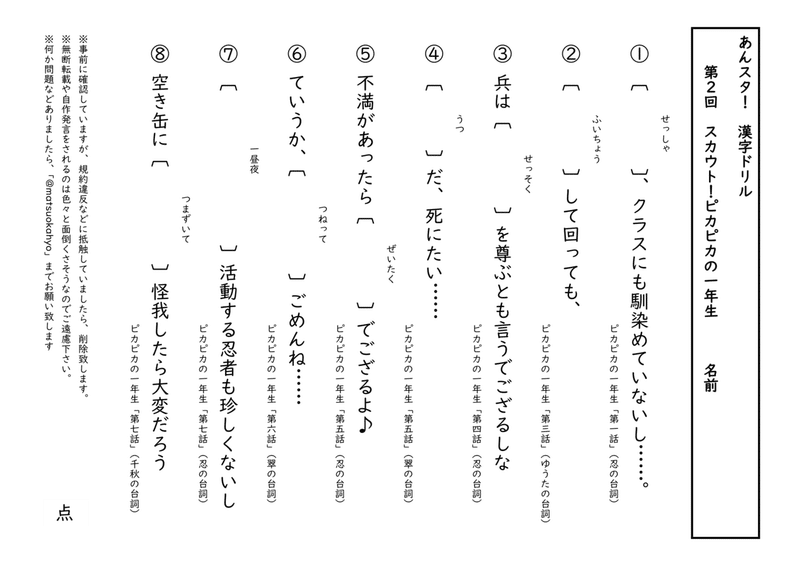 あんスタ！　漢字ドリル
第２回　スカウト！ピカピカの一年生　　名前
せっしゃ
① 〔　　　〕、クラスにも馴染めていないし……。
ピカピカの一年生「第一話」（忍の台詞）
ふいちょう
② 〔　　　〕して回っても、
ピカピカの一年生「第三話」（ゆうたの台詞）
せっそく
③ 兵は〔　　　〕を尊ぶとも言うでござるしな
ピカピカの一年生「第四話」（忍の台詞）
うつ
④ 〔　　　〕だ、死にたい……
ピカピカの一年生「第五話」（翠の台詞）
ぜいたく
⑤ 不満があったら〔　　　〕でござるよ♪
ピカピカの一年生「第五話」（忍の台詞）
つねって
⑥ ていうか、〔　　　〕ごめんね……
ピカピカの一年生「第六話」（翠の台詞）
一昼夜
⑦ 〔　　　〕活動する忍者も珍しくないし
ピカピカの一年生「第七話」（忍の台詞）
つまずいて
⑧ 空き缶に〔　　　〕怪我したら大変だろう
ピカピカの一年生「第七話」（千秋の台詞）
※事前に確認していますが、規約違反などに抵触していましたら、削除致します。
※無断転載や自作発言をされるのは色々と面倒くさそうなのでご遠慮下さい。
※何か問題などありましたら、「@matsuokahyo」までお願い致します
点